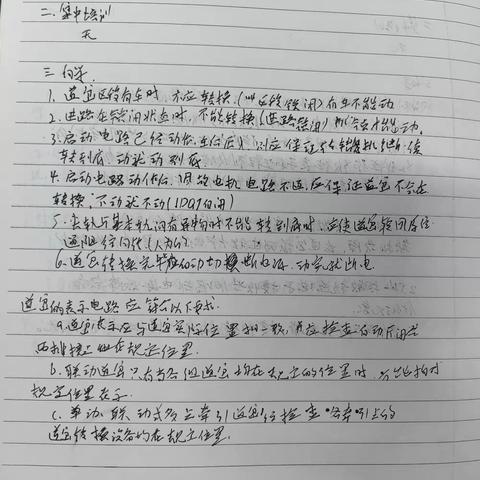 二. 集中培训
无
三. 自学.
1. 道岔区段有车时, 不应转换. (叫区段锁闭) 有车不能动
2. 进路在锁闭状态时, 不能转换 (进路锁闭) 叫
3. 启动电路已经动作, 车后 则应保证 转辙机继续
转到底 动就动到底
4. 启动电路动作后, 因故电机电路不通, 应保证道岔不会在
转换, 不动就不动 (1DQJ自闭)
5. 尖轨与基本轨间有异物时不能转到底时, 应使道岔转回原位
道
6. 道岔转换完毕应自动切断电源, 动完就断电
道岔的表示电路应符合以下要求.
a. 道岔表示应与道岔实际位置相一致, 并应检查自动开闭器
两排接点在规定位置.
b. 联动道岔只有当各组道岔均在规定的位置时, 方能构成
规定位置表示
c. 单动、联动或多点牵引道岔应检查各牵引点的
道岔转换设备均在规定位置.